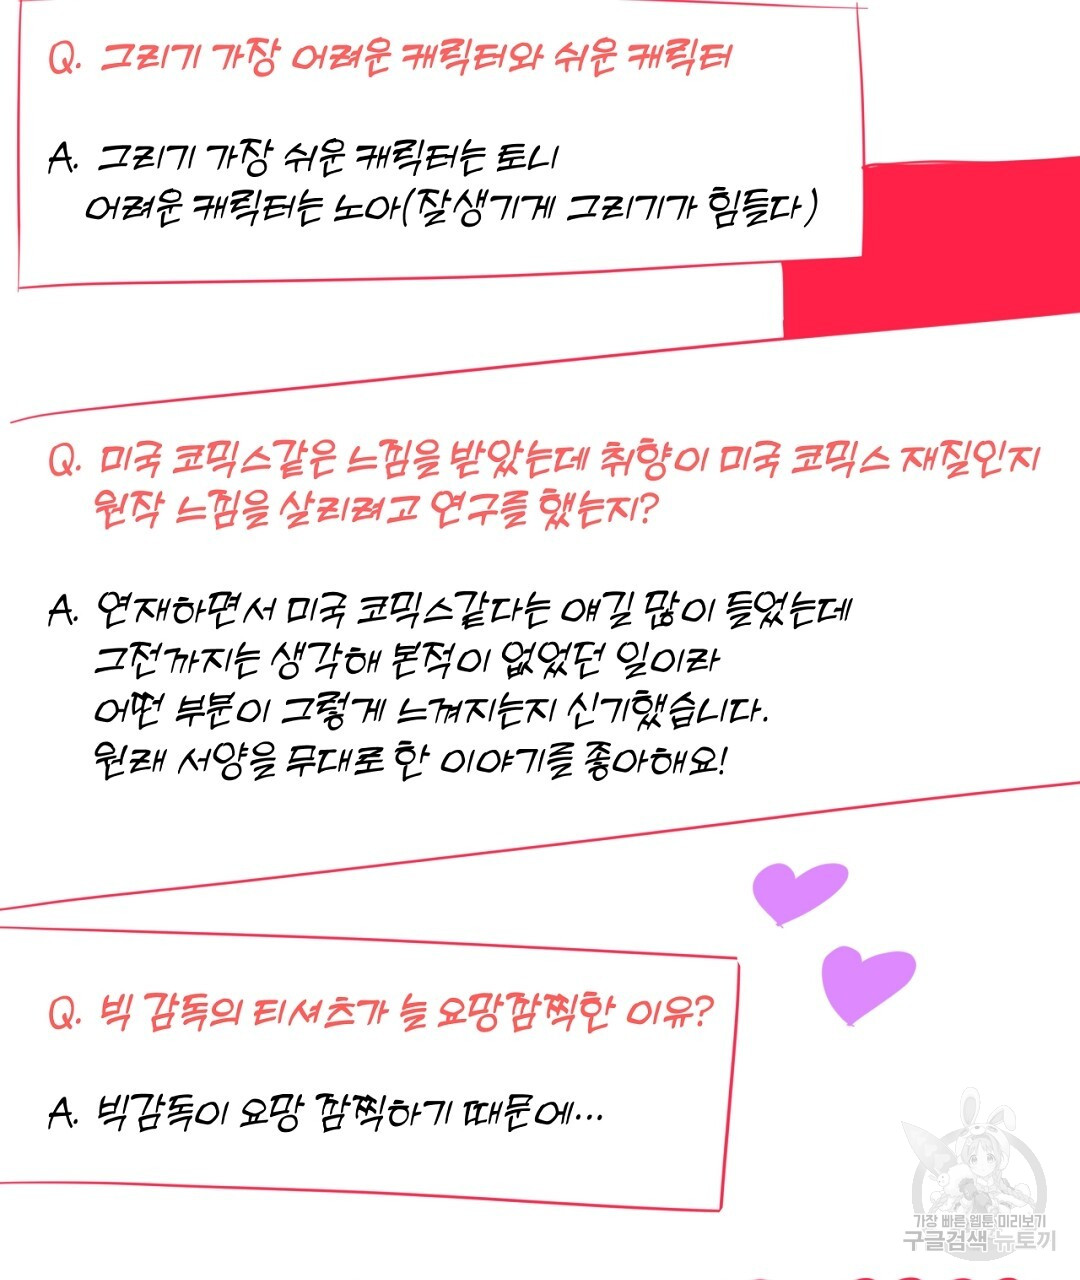 Q. 그리기 가장 어려운 캐릭터와 쉬운 캐릭터
A. 그리기 가장 쉬운 캐릭터는 토니
어려운 캐릭터는 노아(잘생기게 그리기가 힘들다)
Q. 미국 코믹스같은 느낌을 받았는데 취향이 미국 코믹스 재질인지
원작 느낌을 살리려고 연구를 했는지?
A. 연재하면서 미국 코믹스같다는 얘길 많이 들었는데
그전까지는 생각해 본적이 없었던 일이라
어떤 부분이 그렇게 느껴지는지 신기했습니다.
원래 서양을 무대로 한 이야기를 좋아해요!
Q. 빅 감독의 티셔츠가 늘 요망깜찍한 이유?
A. 빅감독이 요망 깜찍하기 때문에...
가장 빠른 웹툰 미리보기
구글검색 뉴토끼